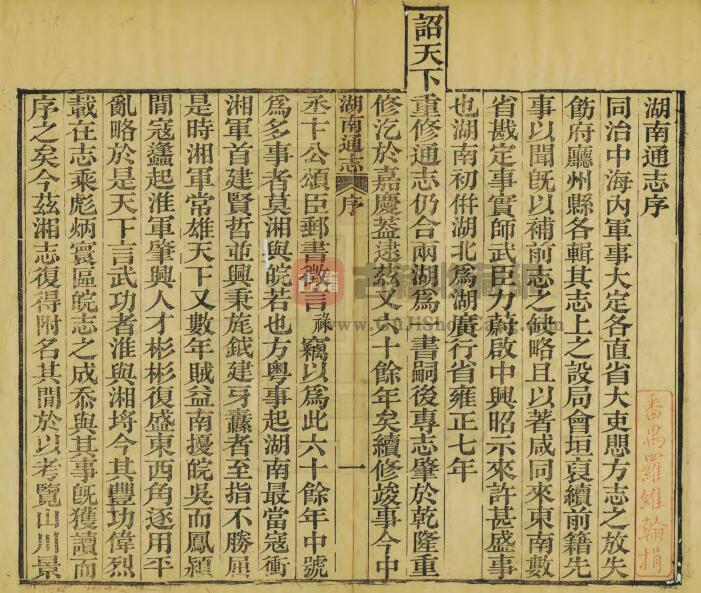 湖南通志序
同治中海內軍事大定各直省大吏愳方志之放失
飭府廳州縣各輯其志上之設局會垣裒續前籍先
事以聞旣以補前志之缺略且以著咸同來東南數
省戡定事實師武臣力蔚啟中興昭示來許甚盛事
也湖南初併湖北爲湖廣行省雍正七年
詔天下重修通志仍合兩湖爲一書嗣後專志肇於乾隆重
修汔於嘉慶葢逮茲又六十餘年矣續修竣事今中
湖南通志
序
一
丞卞公頌臣郵書徵言祿竊以爲此六十餘年中號
爲多事者莫湘與皖若也方粵事起湖南最當寇衝
湘軍首建賢哲並興秉旄鉞建牙纛者至指不勝屈
是時湘軍常雄天下又數年賊益南擾皖吳而鳳潁
閒寇蠭起淮軍肇興人才彬彬復盛東西角逐用平
亂略於是天下言武功者淮與湘埒今其豐功偉烈
載在志乘彪炳寰區皖志之成忝與其事旣獲讀而
序之矣今茲湘志復得附名其閒於以考覽山川景
番禺羅維翰捐